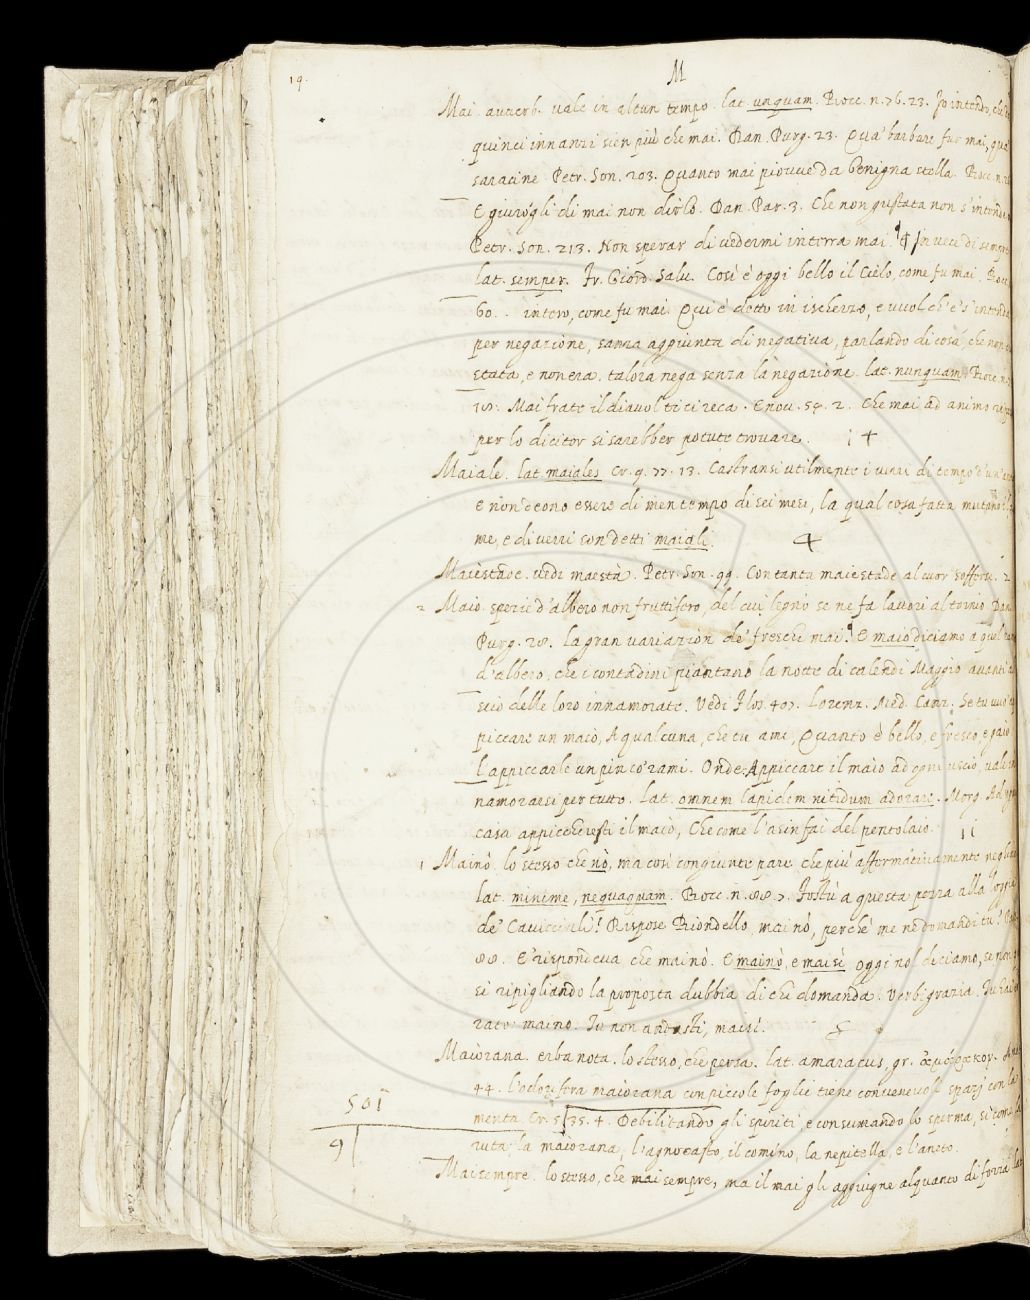 19.
M
Mai. avverb. vale in alcun tempo. lat. unquam. Bocc. n. 76. 23. Io intendo, che
quinci innanzi sien più che mai. Dan. Purg. 23. Qua' barbare fur mai, qua'
saracine. Petr. Son. 203. Quanto mai piovve da benigna stella. Bocc. n.
E giurògli di mai non dirlo. Dan. Par. 3. Che non gustata non s'intende
Petr. Son. 213. Non sperar di vedermi in terra mai. ¶ In vece di sempre
lat. semper. Fr. Giord. Salv. Così è oggi bello il Cielo, come fu mai. Bocc.
60. intero, come fu mai. Qui è detto in ischerzo, e vuol ch'e' s'intenda
per negazione, sanza aggiunta di negativa, parlando di cosa, che non
stata, e non era. talora nega senza la negazione. lat. nunquam. Bocc. n.
18. Mai frate il diavol ti ci reca. E nov. 58. 2. Che mai ad animo
per lo dicitor si sarebber potute trovare.
Maiale. lat. maiales. Cr. 9. 77. 13. Castransi utilmente i verri di tempo d'un
e non deono essere di men tempo di sei mesi, la qual cosa fatta mutano il
me, e di verri son detti maiali.
Maiestade. vedi maestà. Petr. Son. 99. Con tanta maiestade al cuor s'offerse. 2
2 Maio. spezie d'albero non fruttifero, del cui legno se ne fa lavori al tornio. Dan.
Purg. 28. la gran variazion de' freschi mai. ¶ E maio diciamo a quel
d'albero, che i contadini piantano la notte di calendi Maggio avanti
scio delle loro innamorate. Vedi Flos. 407. Lorenz. Med. Canz. Se tu vuo'
piccare un maio, A qualcuna, che tu ami, Quanto è bello, e fresco, e gaio
L'appiccarle un pin co' rami. Onde Appiccare il maio ad ogni uscio, vale
namorarsi per tutto. lat. omnem lapidem nitidum adorare. Morg. Ad
casa appiccheresti il maio, Che come l'asin fai del pentolaio.
1 Mainò. lo stesso che nò, ma così congiunte pare, che più affermativamente neghi
lat. minime, nequaquam. Bocc. n. 88. 7. Fostù a questa pezza alla loggia
de' Cavicciuli? Rispose Biondello, mai nò, perchè me ne domandi tu?
88. E rispondeva che mainò. E mainò, e maisì oggi nol diciamo, se non
se ripigliando la proposta dubbia di chi domanda. Verbigrazia.
rato: maino. Tu non andasti, maisì.
Maiorana. erba nota. lo stesso, che persa. lat. amaracus, gr. ἀμάρακον.
44. l'odorifera maiorana con piccole foglie tiene convenevoli spazj con la
menta. Cr. 5. 35. 4. Debilitando gli spiriti, e consumando lo sperma, sì come la
ruta, la maiorana, l'agnocasto, il comino, la nepitella, e l'aneto.
Maisempre. lo stesso, che mai sempre, ma il mai gli aggiugne alquanto di forza.
501
9